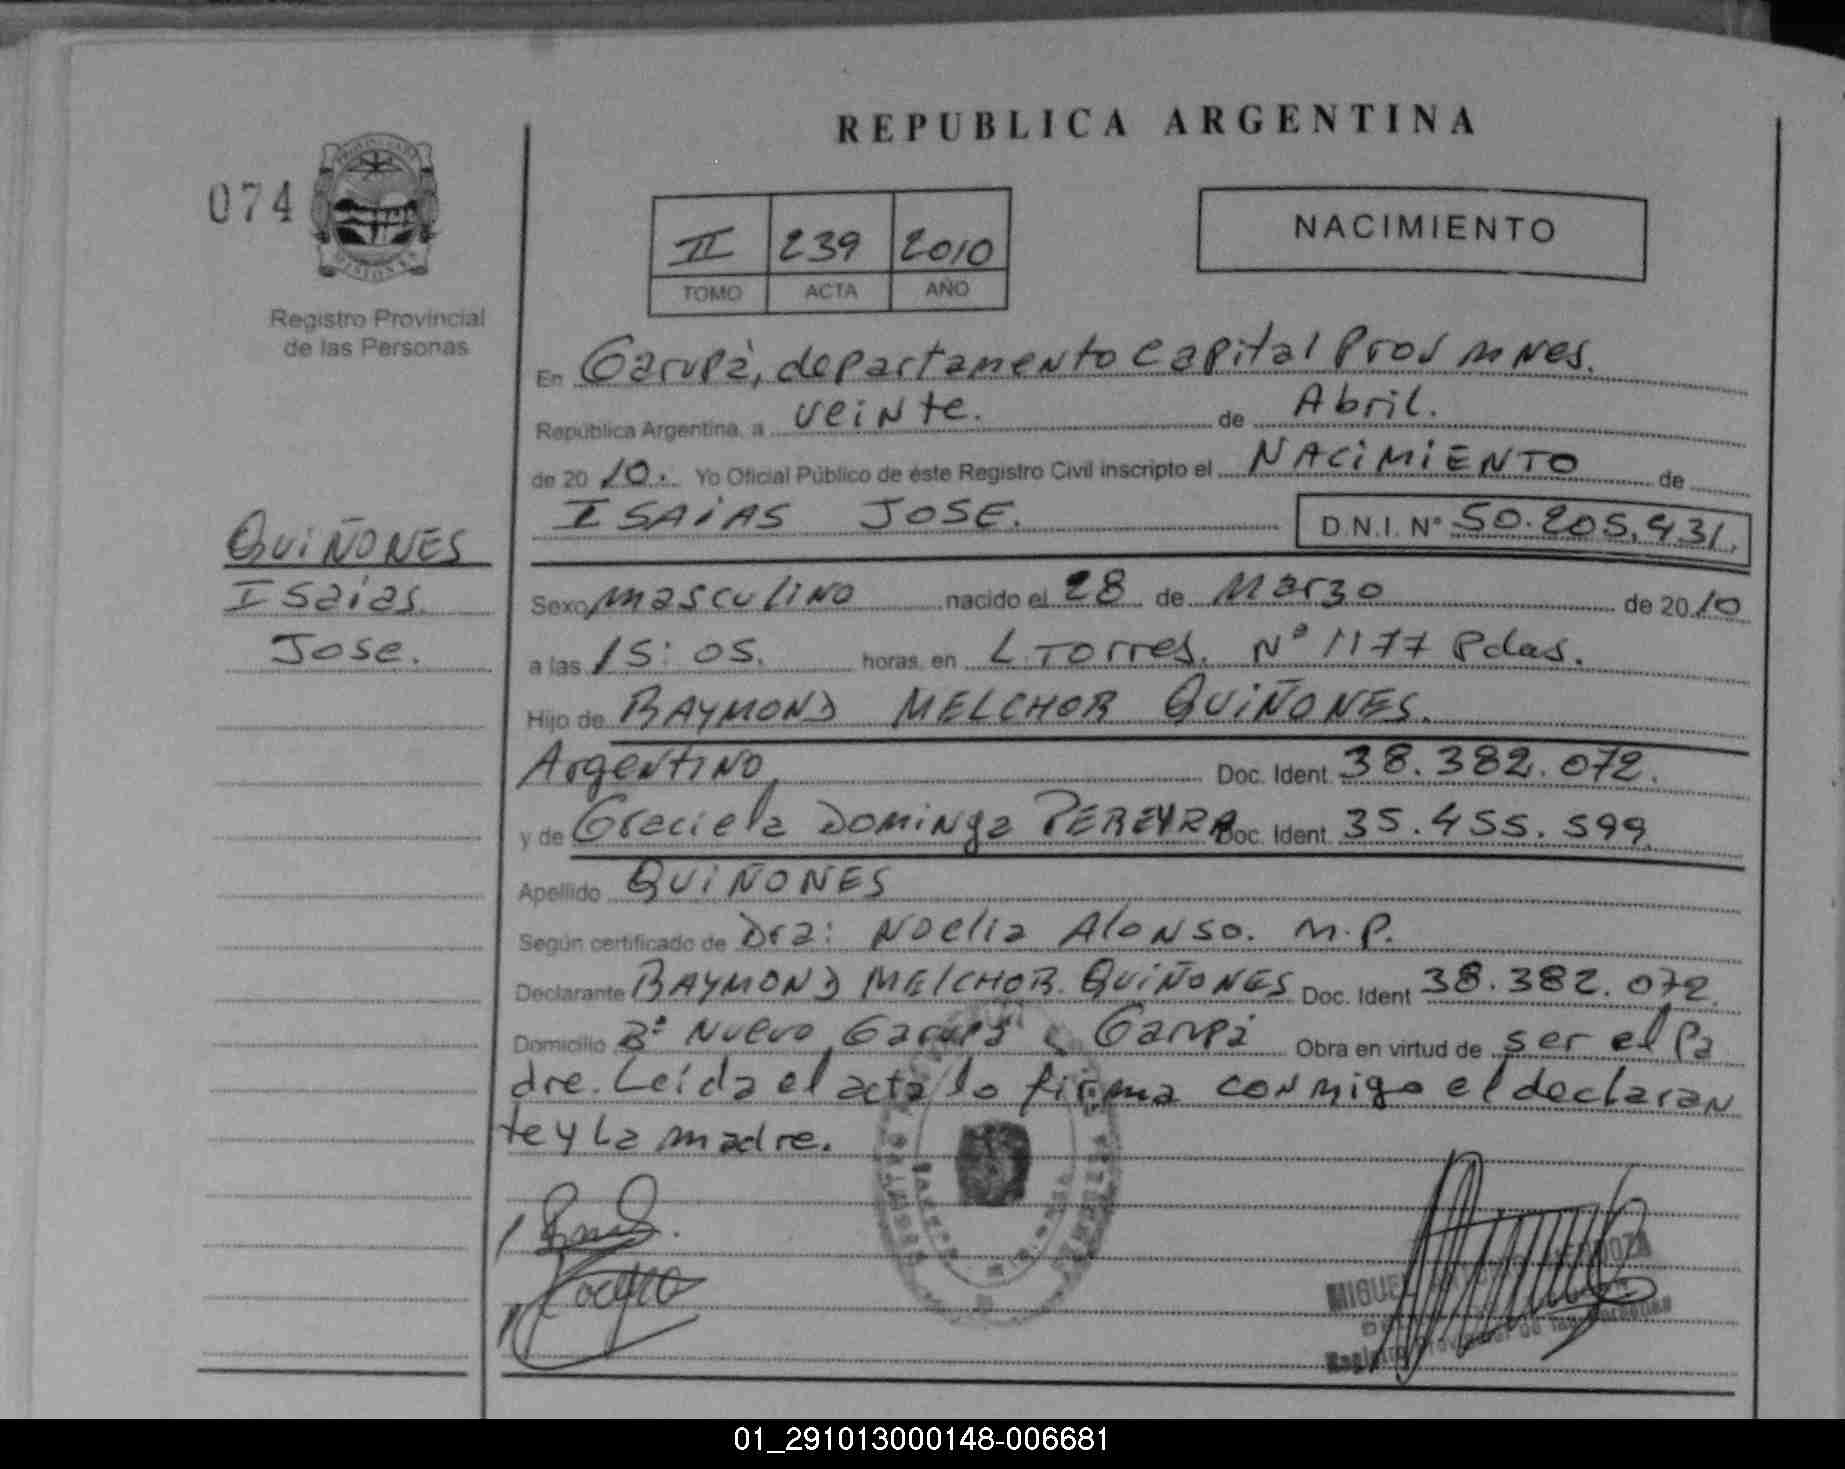 REPUBLICA ARGENTINA
074
PROVINCIA DE
MISIONES
Registro Provincial
de las Personas
II 239 2010
TOMO ACTA AÑO
NACIMIENTO
En Garupà, departamento Capital Prov mnes.
República Argentina, a veinte. de Abril.
de 20 10. Yo Oficial Público de éste Registro Civil inscripto el NACIMIENTO de
ISAIAS JOSE. D.N.I. N° 50.205.431.
QUIÑONES
Isaias
Jose.
Sexo masculino nacido el 28 de Marzo de 20 10
a las 15:05. horas, en L. Torres. N° 1177 Pdas.
Hijo de RAYMOND MELCHOR QUIÑONES.
Argentino Doc. Ident. 38.382.072.
y de Graciela Dominga PEREYRA Doc. Ident. 35.455.599
Apellido QUIÑONES
Según certificado de Dra: Noelia Alonso. M.P.
Declarante RAYMOND MELCHOR QUIÑONES Doc. Ident 38.382.072
Domicilio B° Nuevo Garupá Garupá Obra en virtud de ser el pa
dre. Leída el acta lo firma conmigo el declaran
te y la madre.
MIGUEL
Registro Provincial de las Personas
01_291013000148-006681